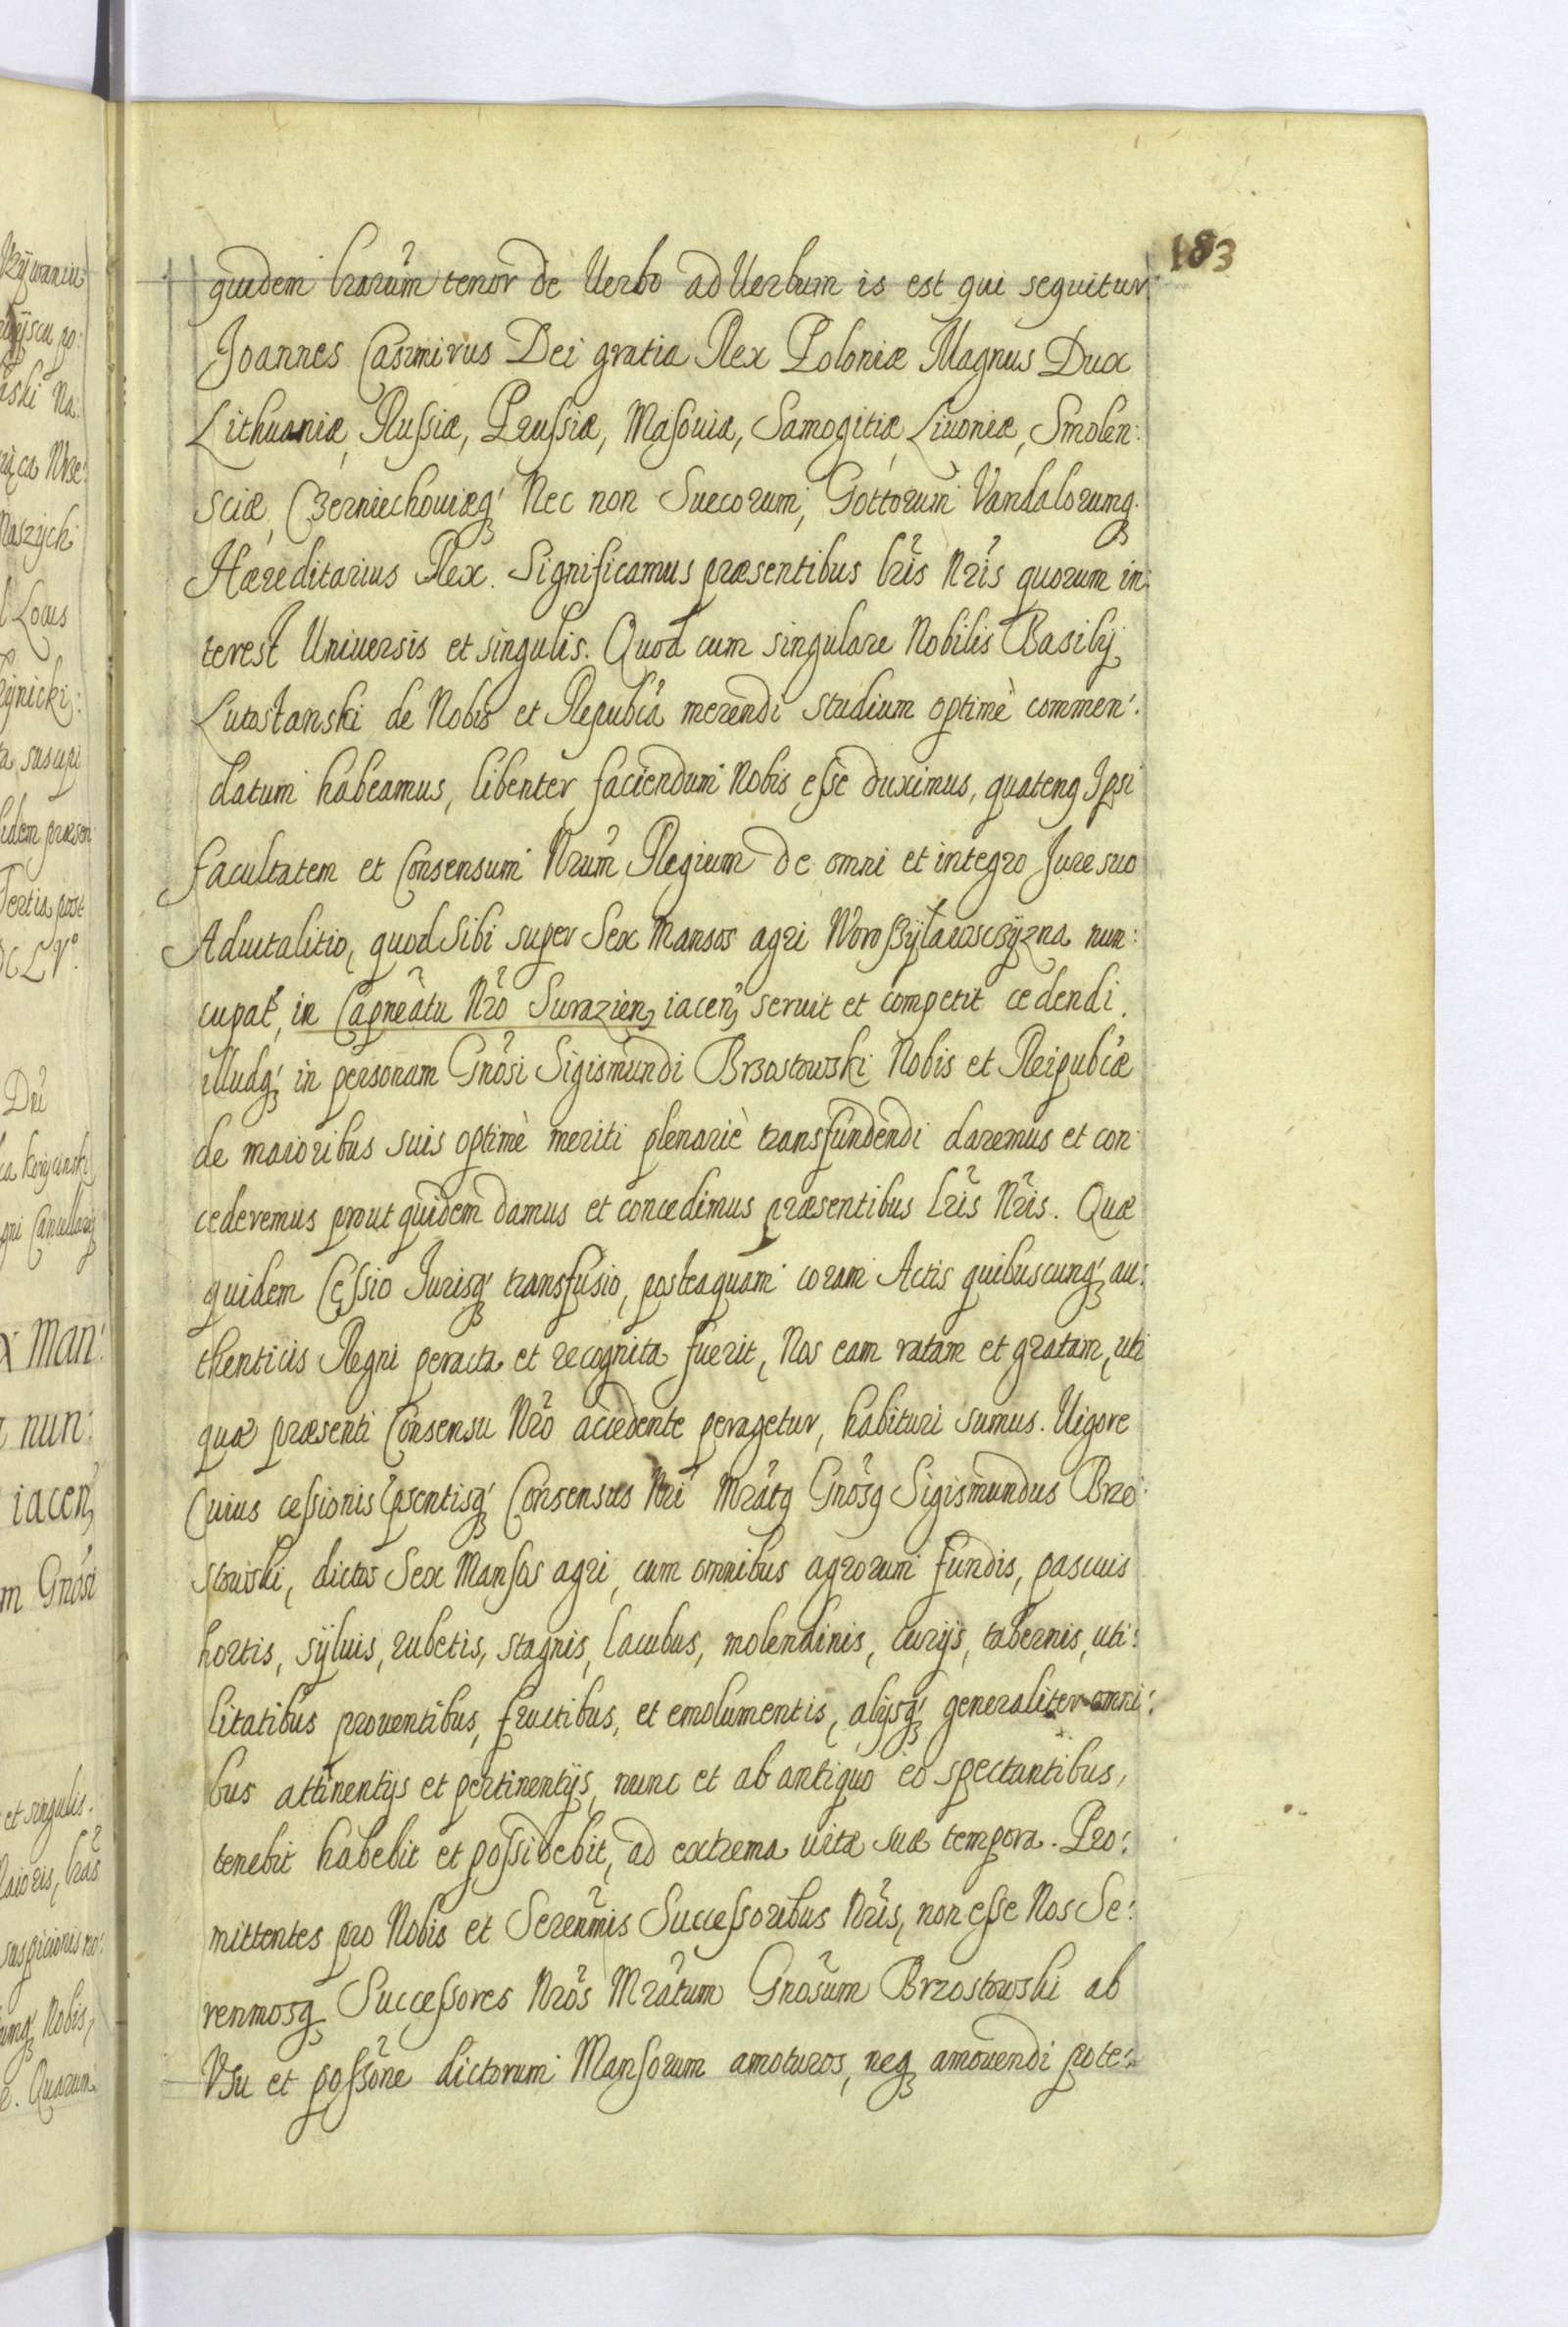 183
quidem lrarum tenor de Verbo ad Verbum is est qui sequitur
Joannes Casimirus Dei gratia Rex Poloniæ Magnus Dux
Lithuaniæ, Russiæ, Prussiæ, Masouiæ, Samogitiæ, Liuoniæ, Smolen:
sciæ, Czerniechouiæq́ꝫ Nec non Suecorum, Gottorum Vandalorumqꝫ
Hæreditarius Rex. Significamus præsentibus lris Nris quorum in:
terest Uniuersis et singulis. Quod cum singulare Nobilis Basilij
Lutostanski de Nobis et Republca merendi studium optimè commen:
datum habeamus, libenter faciendum Nobis esse duximus, quatenq Ipsi
facultatem et Consensum Nrum Regium de omni et integro Jure suo
Aduitalitio, quod sibi super Sex Mansos agri nun:
cupat, in Capneatu Nro Surazien, iacen, seruit et competit cedendi
illudq́ꝫ in personam Gnosi Sigismundi Brzostowski Nobis et Reipublcæ
de maioribus suis optimè meriti plenariè transfundendi daremus et con:
cederemus prout quidem damus et concedimus præsentibus Lris Nris. Quæ
quidem Cessio Jurisq́ꝫ transfusio, posteaquam coram Actis quibuscunq́ꝫ au:
thenticis Regni peracta et recognita fuerit, Nos eam ratam et gratam, uti
quæ præsenti Consensu Nro accedente peragetur, habituri sumus. Uigore
Cuius cessionis psentisq́ꝫ Consensus Nri Mratq Gnosq Sigismundus Brzo:
stowski, dictos Sex Mansos agri, cum omnibus agrorum fundis, pascuis
hortis, syluis, rubetis, stagnis, lacubus, molendinis, curijs, tabernis, uti:
litatibus prouentibus, fructibus, et emolumentis, alijsq́ꝫ generaliter omni:
bus attinentijs et pertinentijs, nunc et ab antiquo eò spectantibus,
tenebit habebit et possidebit, ad extrema uitæ suæ tempora. Pro:
mittentes pro Nobis et Serenmis Successoribus Nris, non esse Nos Se:
renmosqꝫ Successores Nros Mratum Gnosum Brzostowski ab
Vsu et possone dictorum Mansorum amoturos, neqꝫ amouendi pote: